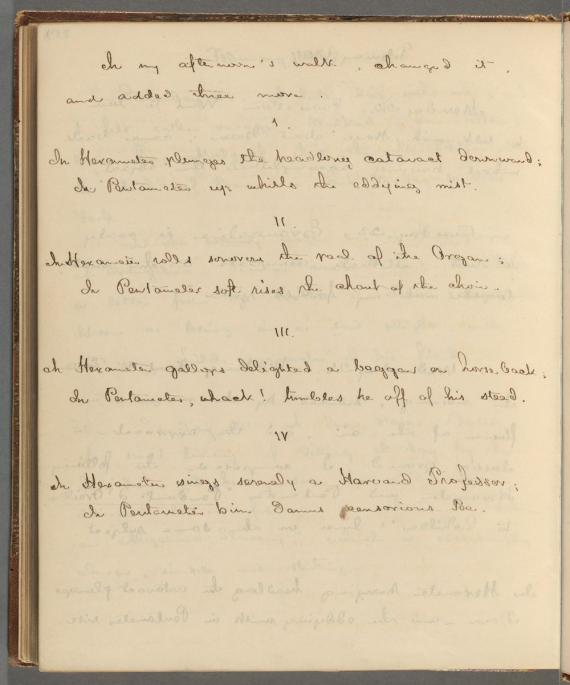 In my afternoon's walk, changed it,
and added three more.
I
In Hexameter plunges the headlong cataract downward;
In Pentameter up whirls the eddying mist.
II.
In Hexameter rolls sonorous the peal of the Organ;
In Pentameter soft rises the chant of the choir.
III.
In Hexameter gallops delighted a beggar on horse-back;
In Pentameter, whack! tumbles he off of his steed.
IV
In Hexameter sings serenely a Harvard Professor;
In Pentameter him damns censorious Poe.